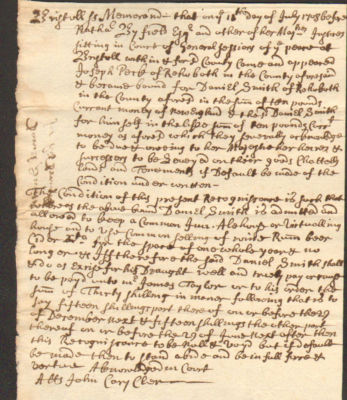 Bristoll ss Memorand that on ye 13th day of July 1708 before
Natha Byfield Esqr and other of her Majties Justices
sitting in Court of Generall sessions of ye peace at
Bristoll within & for sd County Came and appeared
Joseph Peck of Rehoboth in the County aforesaid
& became bound for Daniel Smith of Rehoboth
in the County aforesd in the sum of ten pounds
Current money of New England & the sd Daniel Smith
for himself in the like sum of ten pounds Currt
money as aforesd which they severally acknowledge
to be due & oweing to her Majestie her heires &
successors to be Levyed on their goods Chattells
lands and Tenements if Default be made of the
Condition under written
The Condition of this present Recogniscance is such that
whereas the above bound Daniel Smith is admitted and
allowed to keep a Common Inn Alehouse or Victualling
house and to use Common selling of wine Rum beer
Cider &c for the space of one whole year & no
longer & if therefore the said Daniel Smith shall
as Excise for his Draught well and truly pay or cause
to be payd unto mr James Taylor or to his order the
sum of Thirty shilling in maner following that is to
say fifteen shillings part thereof on or before the
of December next & fifteen shillings the other part
thereof on or before the of June next after then
this Recogniscance to be Null & voyd but if default
be made then to stand abide and be in full force &
vertue Acknowledged in Court
Atts John Cary Cler